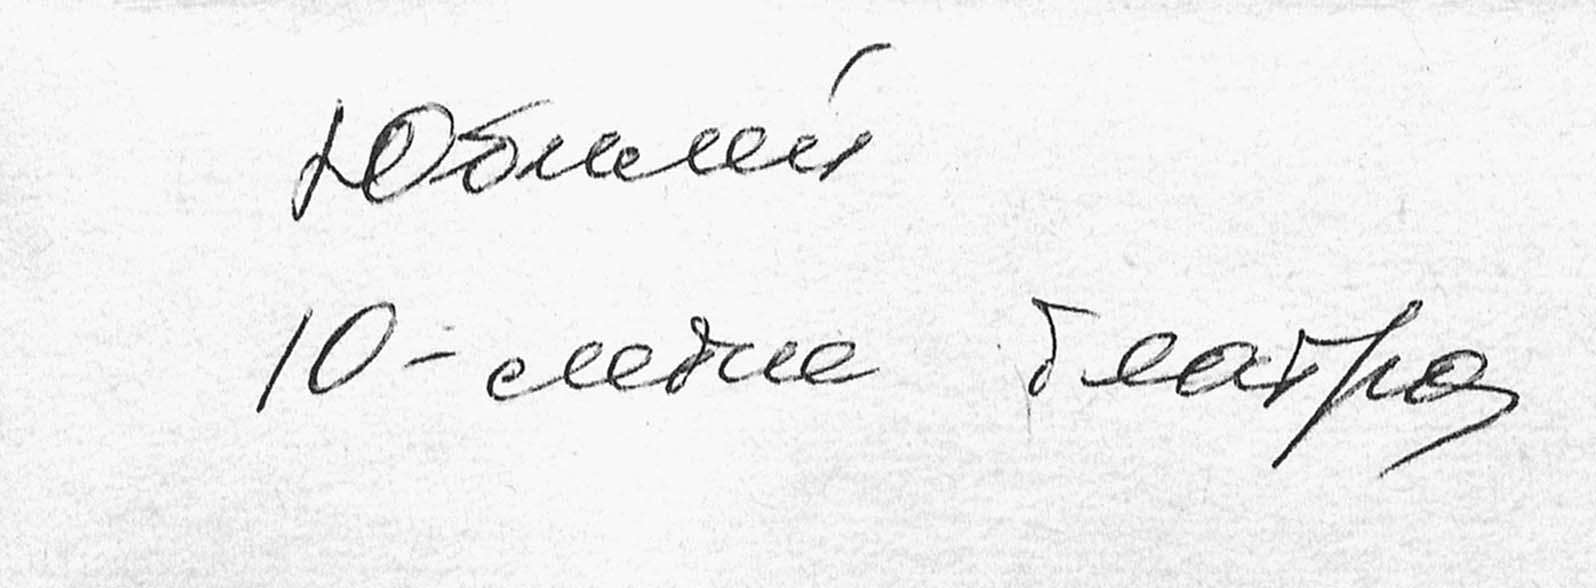 Юбилей
10-летие театра